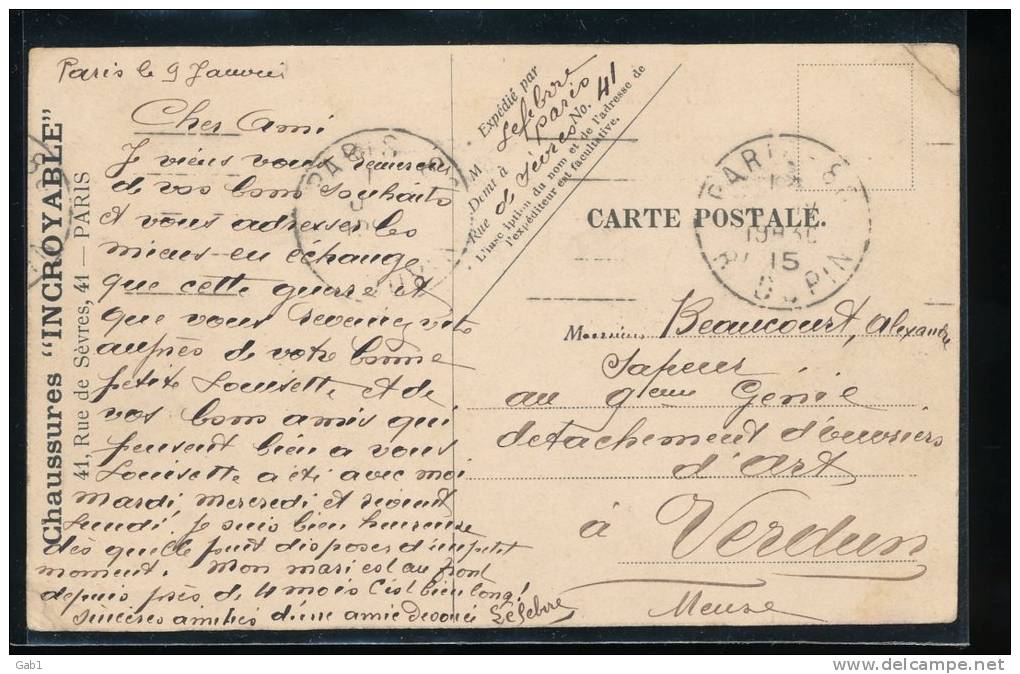 Chaussures "INCROYABLE"
41, Rue de Sèvres, 41 — PARIS
Paris le 9 Janvier
Cher Ami
Je viens vous remercier
de vos bons souhaits
et vous adresser les
miens en échange
que cette guerre et
que vous reveniez vite
auprès de votre bonne
petite Louisette et de
vos bons amis qui
pensent bien a vous
Louisette a été avec moi
mardi, mercredi et
Lundi, Je suis bien heureuse
dès quelle puit disposer d'un petit
moment. Mon mari est au front
depuis près de 4 mois c'est bien long!
Sincères amitiés d'une amie devouée Lefebvre
Expédié par
M Lefebvre
Demt à Paris
Rue de Sèvres No. 41
L'inscription du nom et de l'adresse de
l'expéditeur est facultative.
CARTE POSTALE.
PARIS
PARIS
15
R. DUPIN
Monsieur Beaucourt, Alexandre
Sapeur
au 9eme Génie
detachement d'ouvriers
d'Art
à Verdun
Meuse
Gab1
http://www.delcampe.net